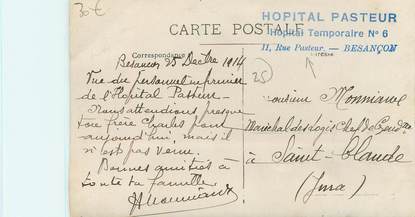 30€
HOPITAL PASTEUR
Hopital Temporaire Nº 6
11, Rue Pasteur, — BESANÇON
CARTE POSTALE
Correspondance
Besançon 25 Decbre 1914
25
Vue du personnel infirmier
de l'Hopital Pasteur
Nous attendions presque
ton frère Charles pour
aujourd'hui, mais il
n'est pas venu.
Bonnes amitiés à
toute ta famille
Monsieur
Maréchal des Logis Chef de Gend
à Saint-Claude
(Jura)